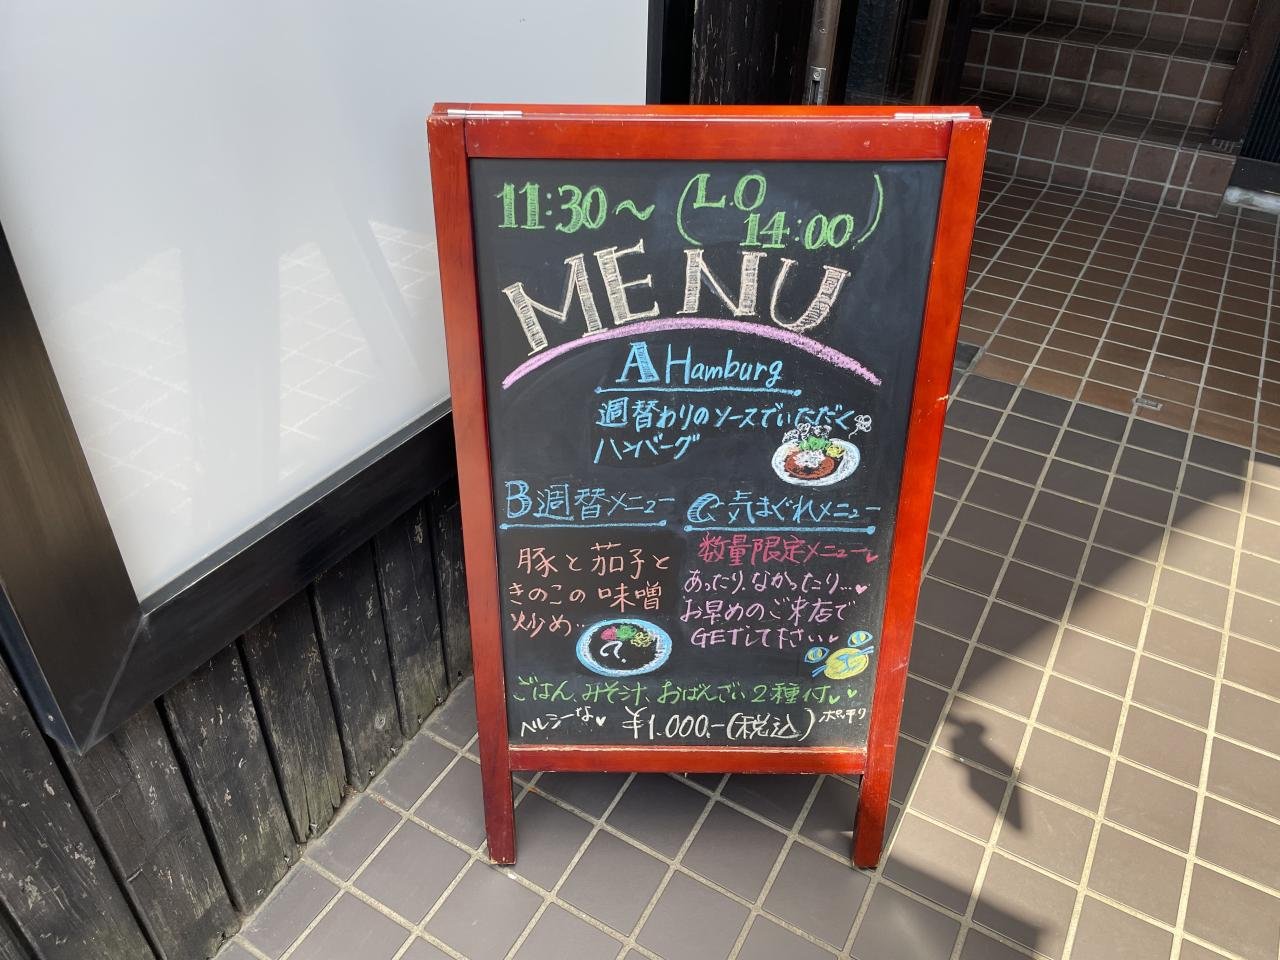 11:30〜 (L.O 14:00)
MENU
A Hamburg
週替わりのソースでいただく
ハンバーグ
B週替メニュー
豚と茄子と
きのこの味噌
炒め..
C気まぐれメニュー
数量限定メニュー♥
あったり、なかったり...♥
お早めのご来店で
GETして下さい♥
ごはん、みそ汁、おばんざい2種付♥♥
ヘルシーな♥ ¥1.000.-(税込)ポッキリ